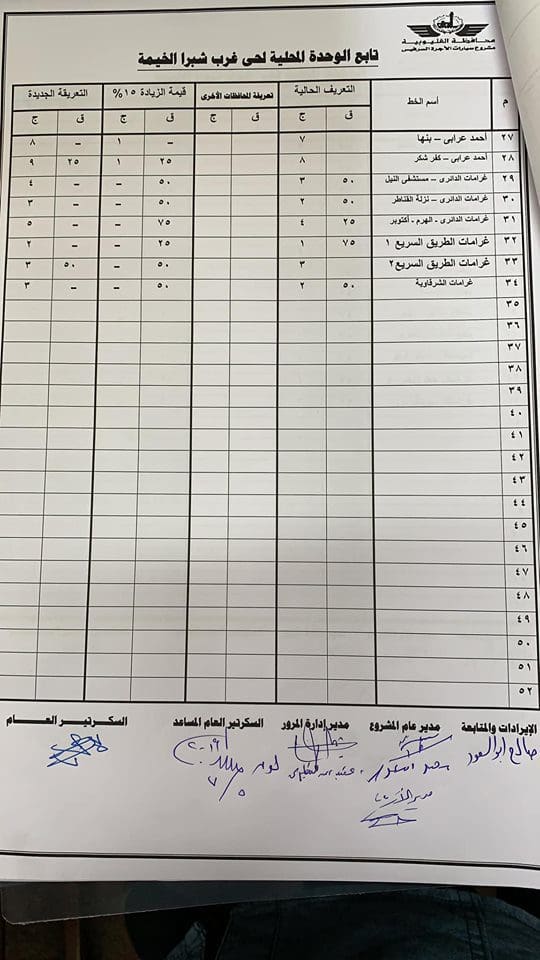 محافظة القليوبية
مشروع سيارات الأجرة السرفيس
تابع الوحدة المحلية لحى غرب شبرا الخيمة
م أسم الخط التعريف الحالية تعريفة للمحافظات الأخرى قيمة الزيادة ١٥% التعريفة الجديدة
ق ج ق ج ق ج ق ج
٢٧ أحمد عرابى – بنها ٧ – ١ – ٨
٢٨ أحمد عرابى – كفر شكر ٨ ٢٥ ١ ٢٥ ٩
٢٩ غرامات الدائرى – مستشفى النيل ٥٠ ٣ ٥٠ – – ٤
٣٠ غرامات الدائرى – نزلة القناطر ٥٠ ٢ ٥٠ – – ٣
٣١ غرامات الدائرى - الهرم - أكتوبر ٢٥ ٤ ٧٥ – – ٥
٣٢ غرامات الطريق السريع ١ ٧٥ ١ ٢٥ – – ٢
٣٣ غرامات الطريق السريع ٢ ٣ ٥٠ – ٥٠ ٣
٣٤ غرامات الشرقاوية ٥٠ ٢ ٥٠ – – ٣
٣٥
٣٦
٣٧
٣٨
٣٩
٤٠
٤١
٤٢
٤٣
٤٤
٤٥
٤٦
٤٧
٤٨
٤٩
٥٠
٥١
٥٢
الإيرادات والمتابعة مدير عام المشروع مدير إدارة المرور السكرتير العام المساعد السكرتير العام
صالح ابو السعود